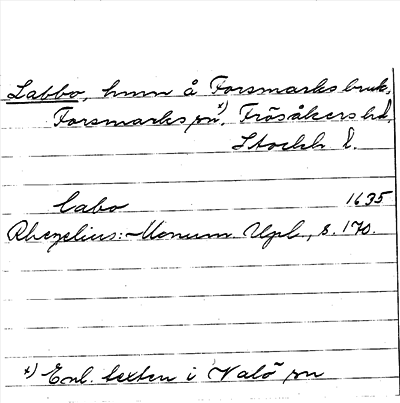 Labbo, hmn å Forsmarks bruk,
Forsmarks sn *), Frösåkers hd,
Stockh l.
Cabo 1635
Rhezelius: Monum Upl., s. 170.
*) Enl. texten i Valö sn